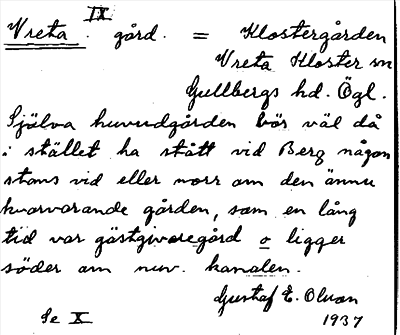 IX
Vreta. gård. = Klostergården
Vreta Kloster sn
Gullbergs hd. Ögl.
Själva huvudgården bör väl då
i stället ha stått vid Berg någon
stans vid eller norr om den ännu
kvarvarande gården, som en lång
tid var gästgivaregård o ligger
söder om nuv. kanalen.
Gustaf E. Olsson
Se X 1937